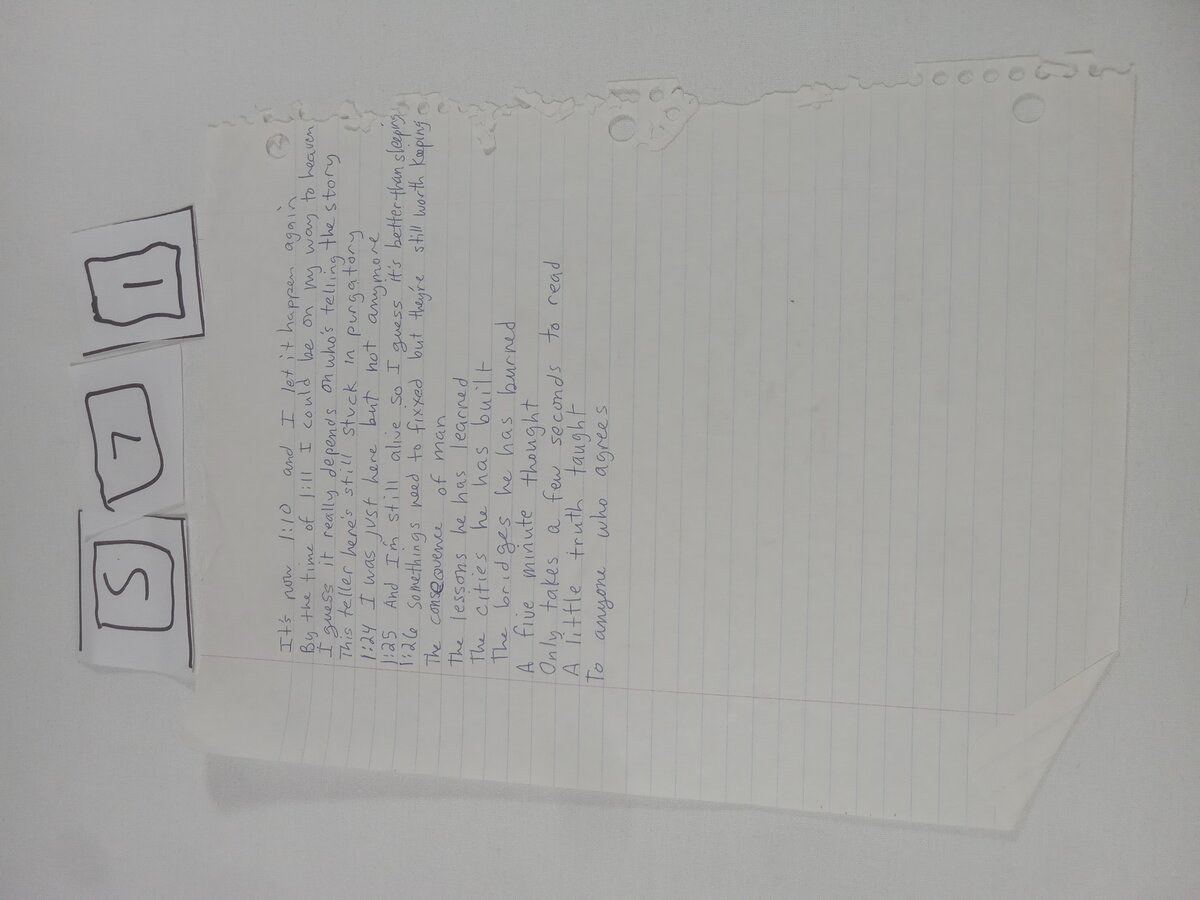 5 7 1
2
It's now 1:10 and I let it happen again
By the time of 1:11 I could be on my way to heaven
I guess it really depends on who's telling the story
This teller here's still stuck in purgatory
1:24 I was just here but not anymore
1:25 And I'm still alive so I guess it's better than sleeping
1:26 Somethings need to fixxed but they're still worth keeping
The consequence of man
The lessons he has learned
The cities he has built
The bridges he has burned
A five minute thought
Only takes a few seconds to read
A little truth taught
To anyone who agrees